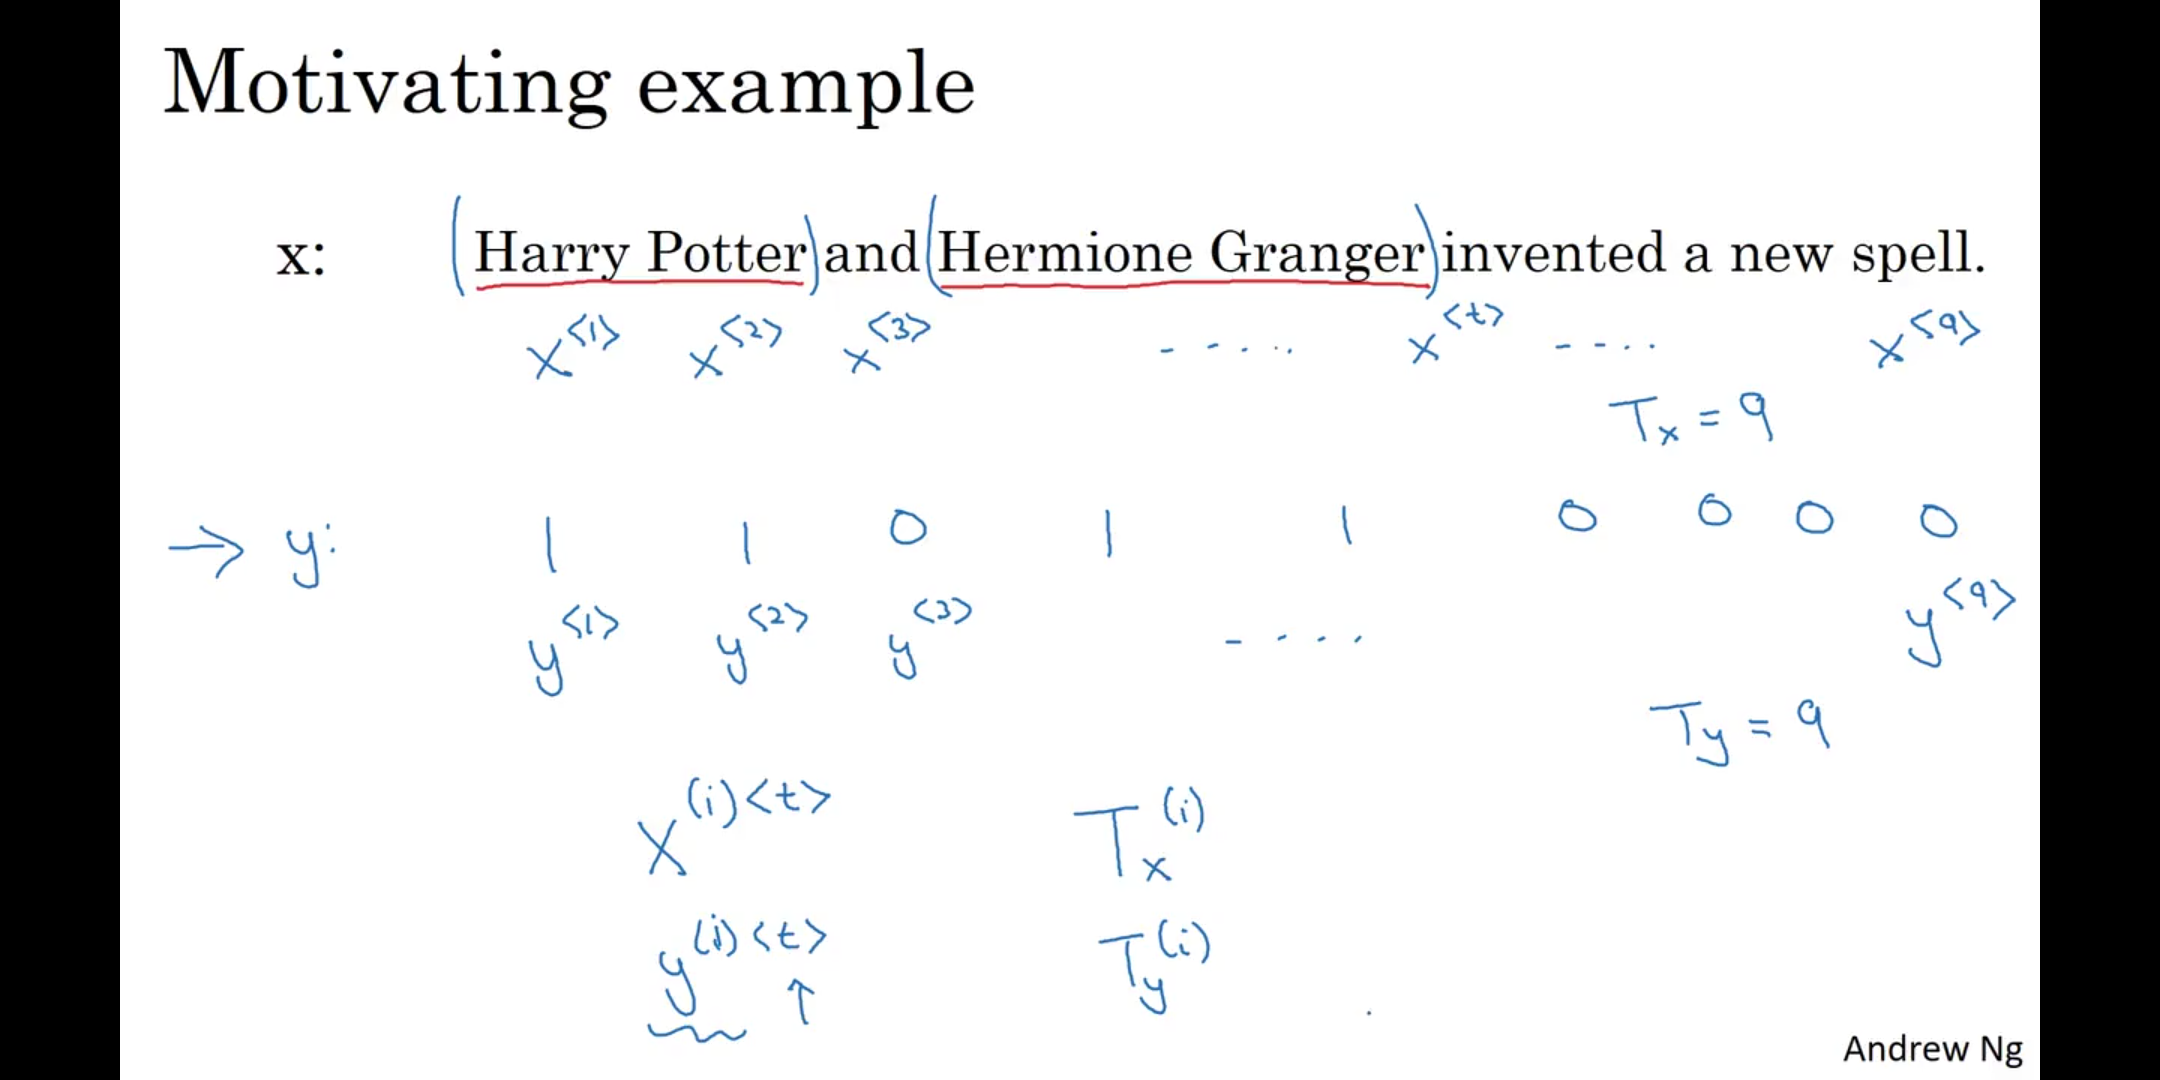 Motivating example
x: (Harry Potter) and (Hermione Granger) invented a new spell.
x<1> x<2> x<3> - - . . . x<t> - - . . x<9>
Tx = 9
→ y: 1 1 0 1 1 0 0 0 0
y<1> y<2> y<3> - . . . y<9>
Ty = 9
X(i)<t> Tx(i)
y(i)<t> Ty(i)
↑
Andrew Ng